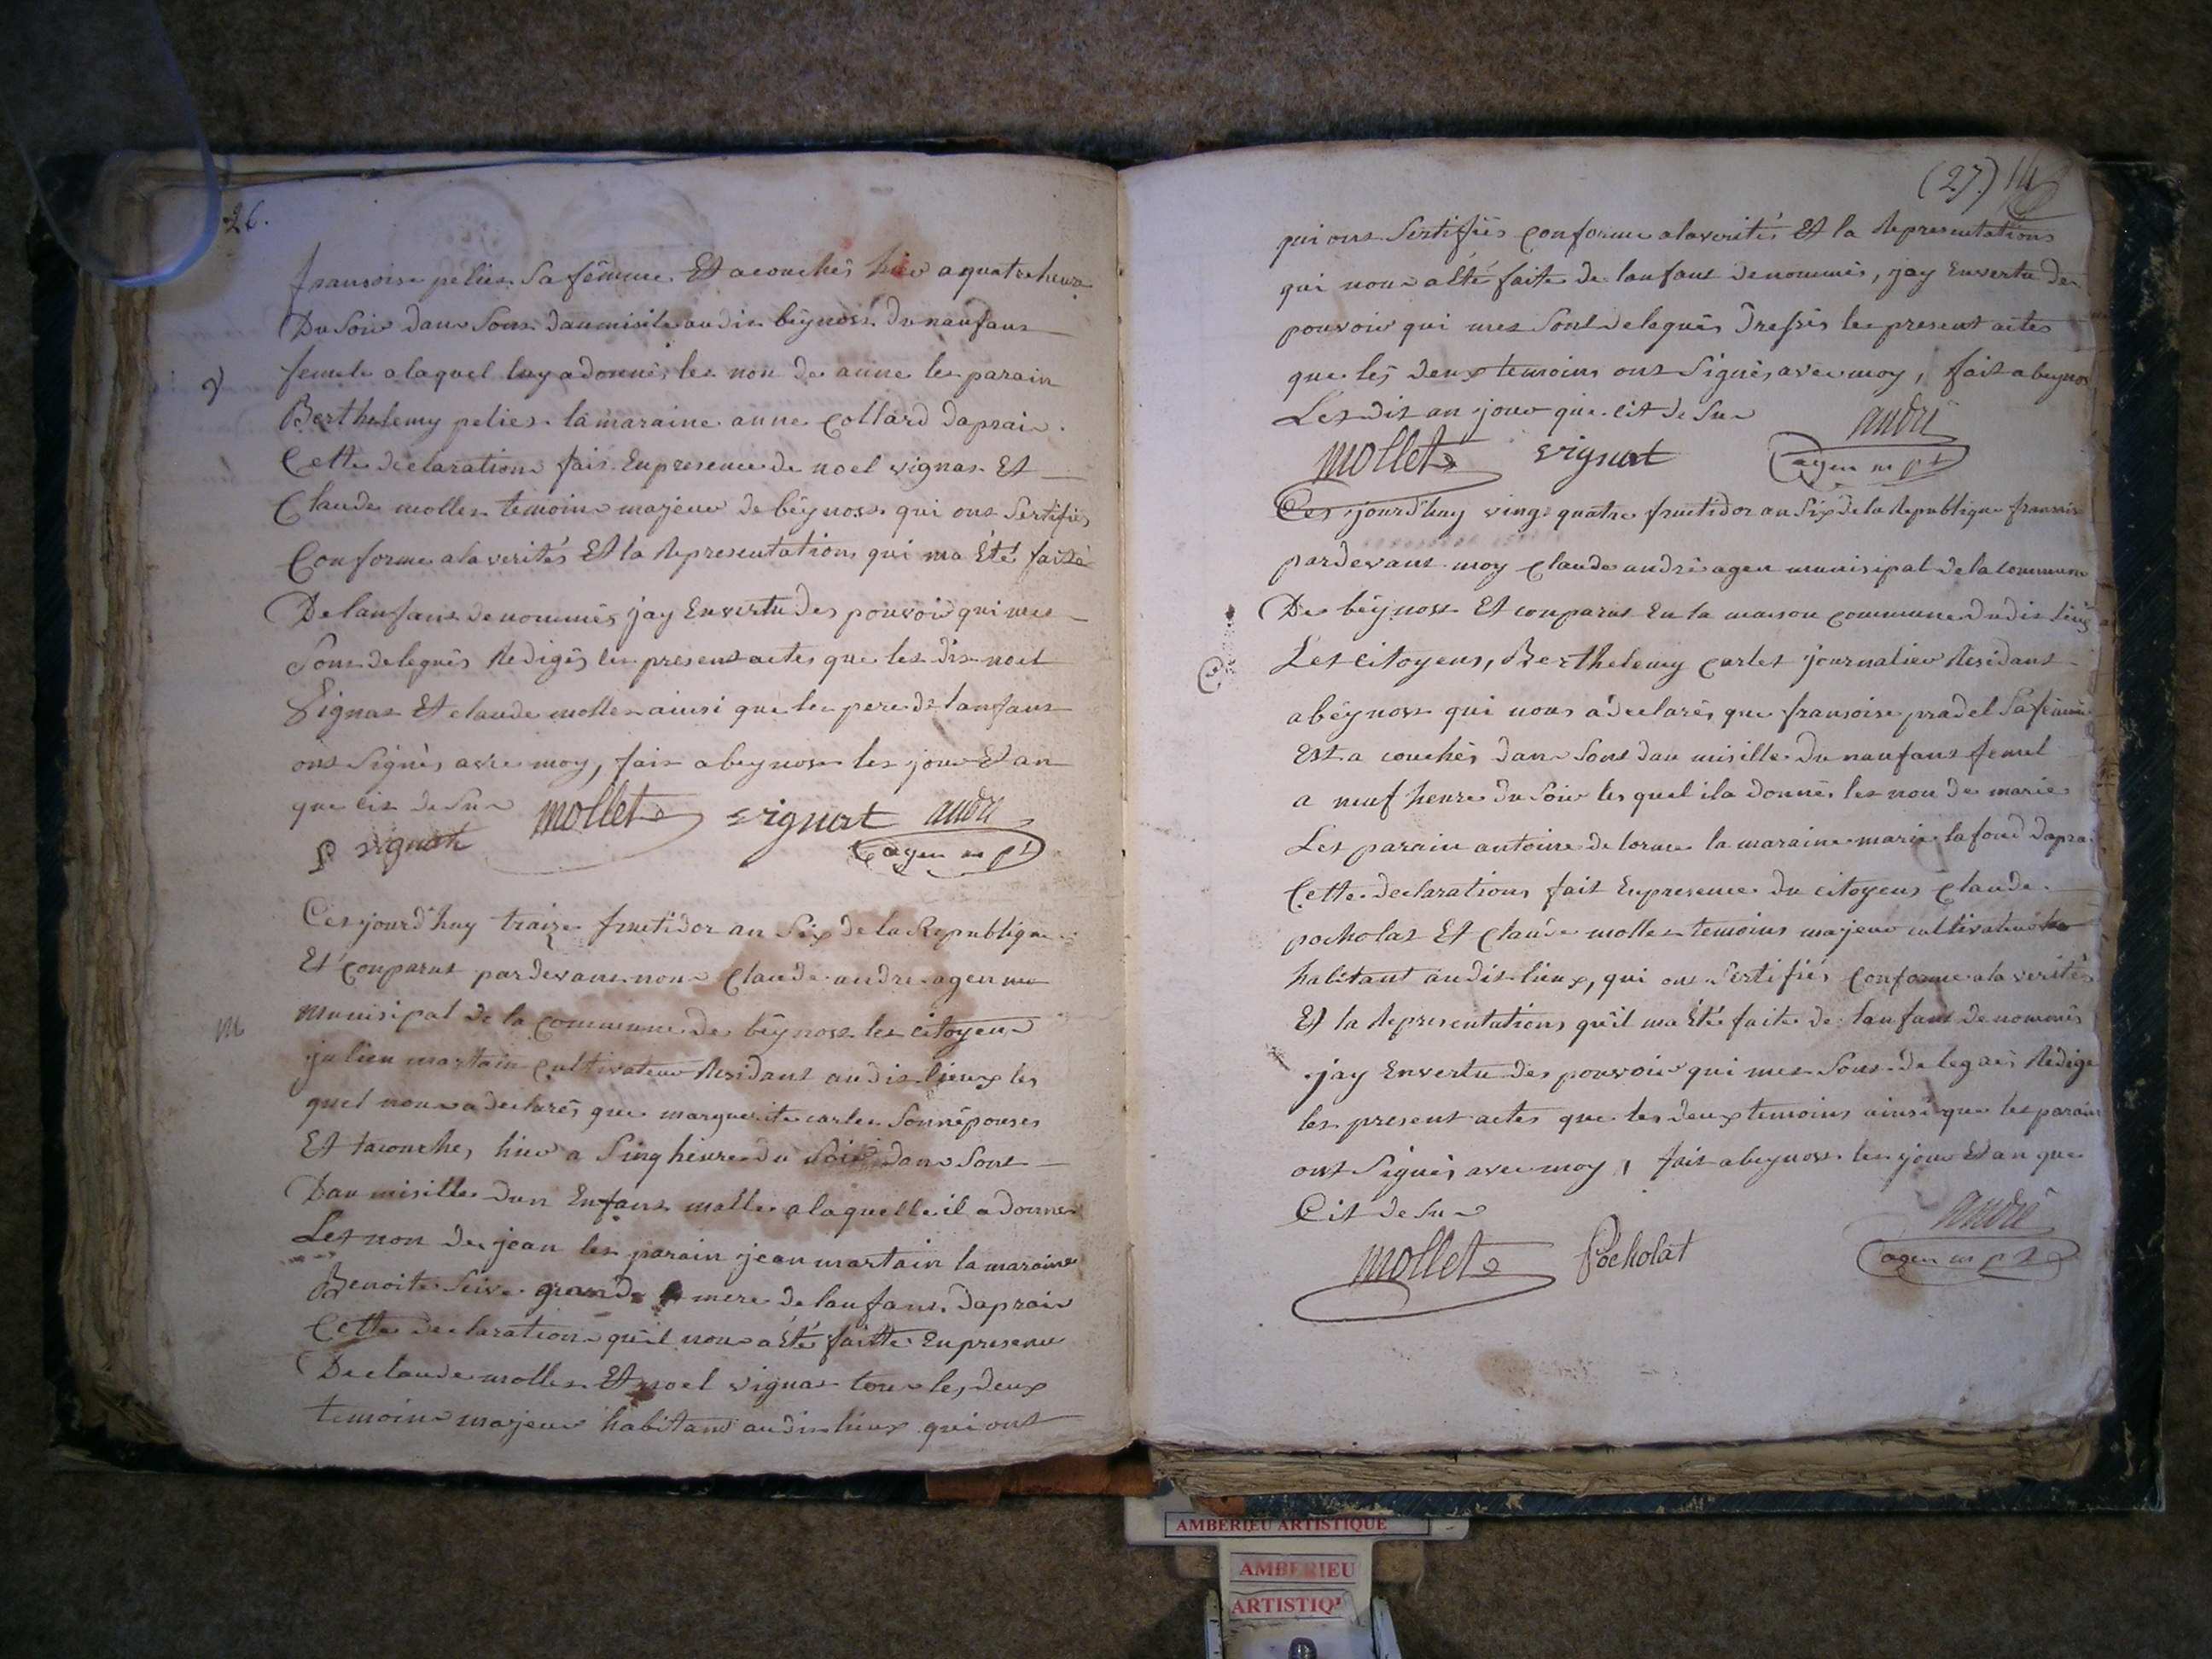 26.
fransoise pelies sa fémme Et acouchés hier a quatre heure
Du soir dans sont daumisile au dit béynost du nanfant
femele a laquel luy a donnés les non de anne les parain
Berthelemy pelies la maraine anne Collard daprai
Cette declarations fait En presence de noel vignat Et
Claude mollet temoins majeur de béynost qui ont Sertifiés
Conforme a la verités Et la Representations qui ma Eté faite
De lanfant denommés jay En vertu des pouvoir qui mes
Sont delegués Redigés les present actes que les dit noel
Vignat Et claude mollet ainsi que les pere de lanfant
ont Signés avec moy, fait a beynost les jour Et an
que cit de Sur mollet vignat andré
P vignat agen m pl
Ces jourd'huy traize fructidor an Six de la Republique
Et Conparut pardevant nous Claude andre agen mu
M
Munisipal de la commune de béynost les citoyens
julien martain cultivateur Residant au dit lieux les
quel nous a declarés que marguerite carles Sonnépouses
Et tacouches hier a Sinq heure du Soir dans Sont
Daumisille dun Enfant malle a laquelle il a donnés
Les non de jean les parain jean martain la maraine
Benoite Seive grande mere de lanfant. daprair
Cette declarations quil nous a Eté faitte En presence
De claude mollet Et noel vignat tous les deux
temoins majeur habitant au dit lieux qui ont
(27)
qui ont Sertifiés Conforme a la verités Et la Representations
qui nous a Eté faite de lanfant denommés, jay En vertu des
pouvoir qui mes Sont delegués Dressés les present actes
que les deux temoins ont Signés avec moy, fait a beynost
Les dit an jour que cit de Sur andré
mollet vignat agen m pl
Ces jourd'huy vingt quatre fructidor an Six de la Republique fransais
pardevant moy Claude andré agen munisipal de la commune
De béynost Et conparut En la maison commune du dit lieus
C
Les citoyens, Berthelemy carlet journalier Residant
a béynost qui nous a declarés que fransoise pradel Sa fémme
Est a couchés dans Sont daumisille du nanfant femel
a neuf heure du Soir les quel il a donnés les non de marie
Les parain antoine de lorme la maraine marie lafond dapra
Cette declarations fait En presence du citoyens Claude
pocholat Et Claude mollet temoins majeur cultivateur
habitant au dit lieux, qui ont Sertifiés Conforme a la verités
Et la Representations quil ma Eté faite de lanfant denommés
jay En vertu des pouvoir qui mes Sont delegués Redigé
les present actes que les deux temoins ainsi que les parain
ont Signés avec moy, fait a beynost les jour Et an que
Cit de Sur andré
mollet Pocholat agen m pl
AMBERIEU ARTISTIQUE
AMBERIEU
ARTISTIQ